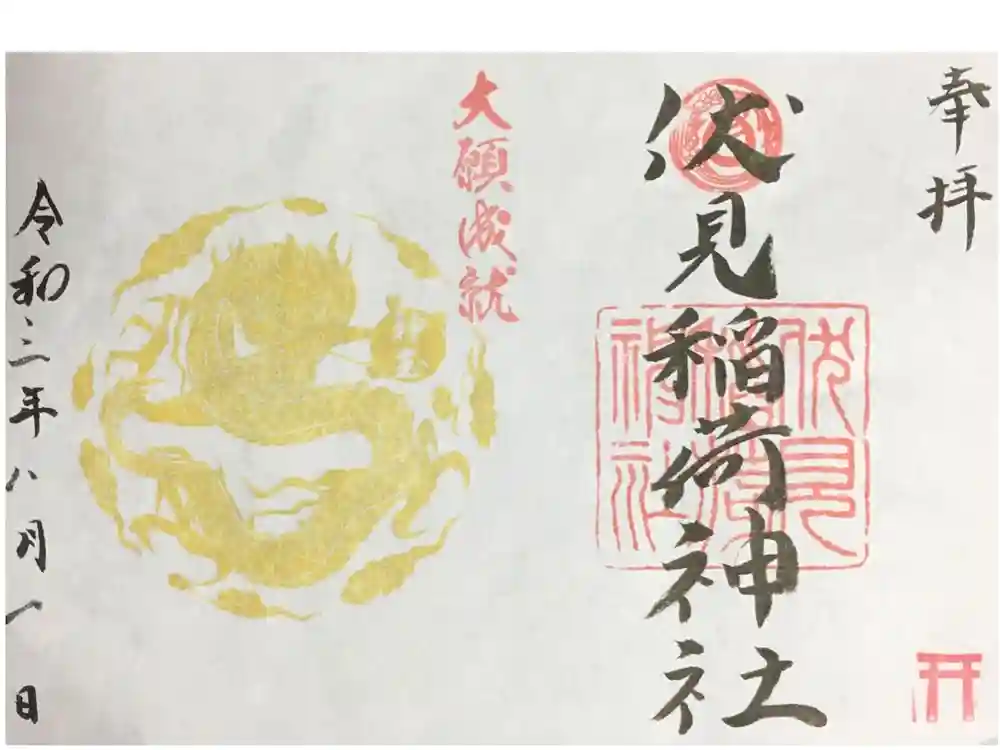 奉拝
伏見稲荷神社
伏見
稲荷
神社
大願成就
令和三年八月一日